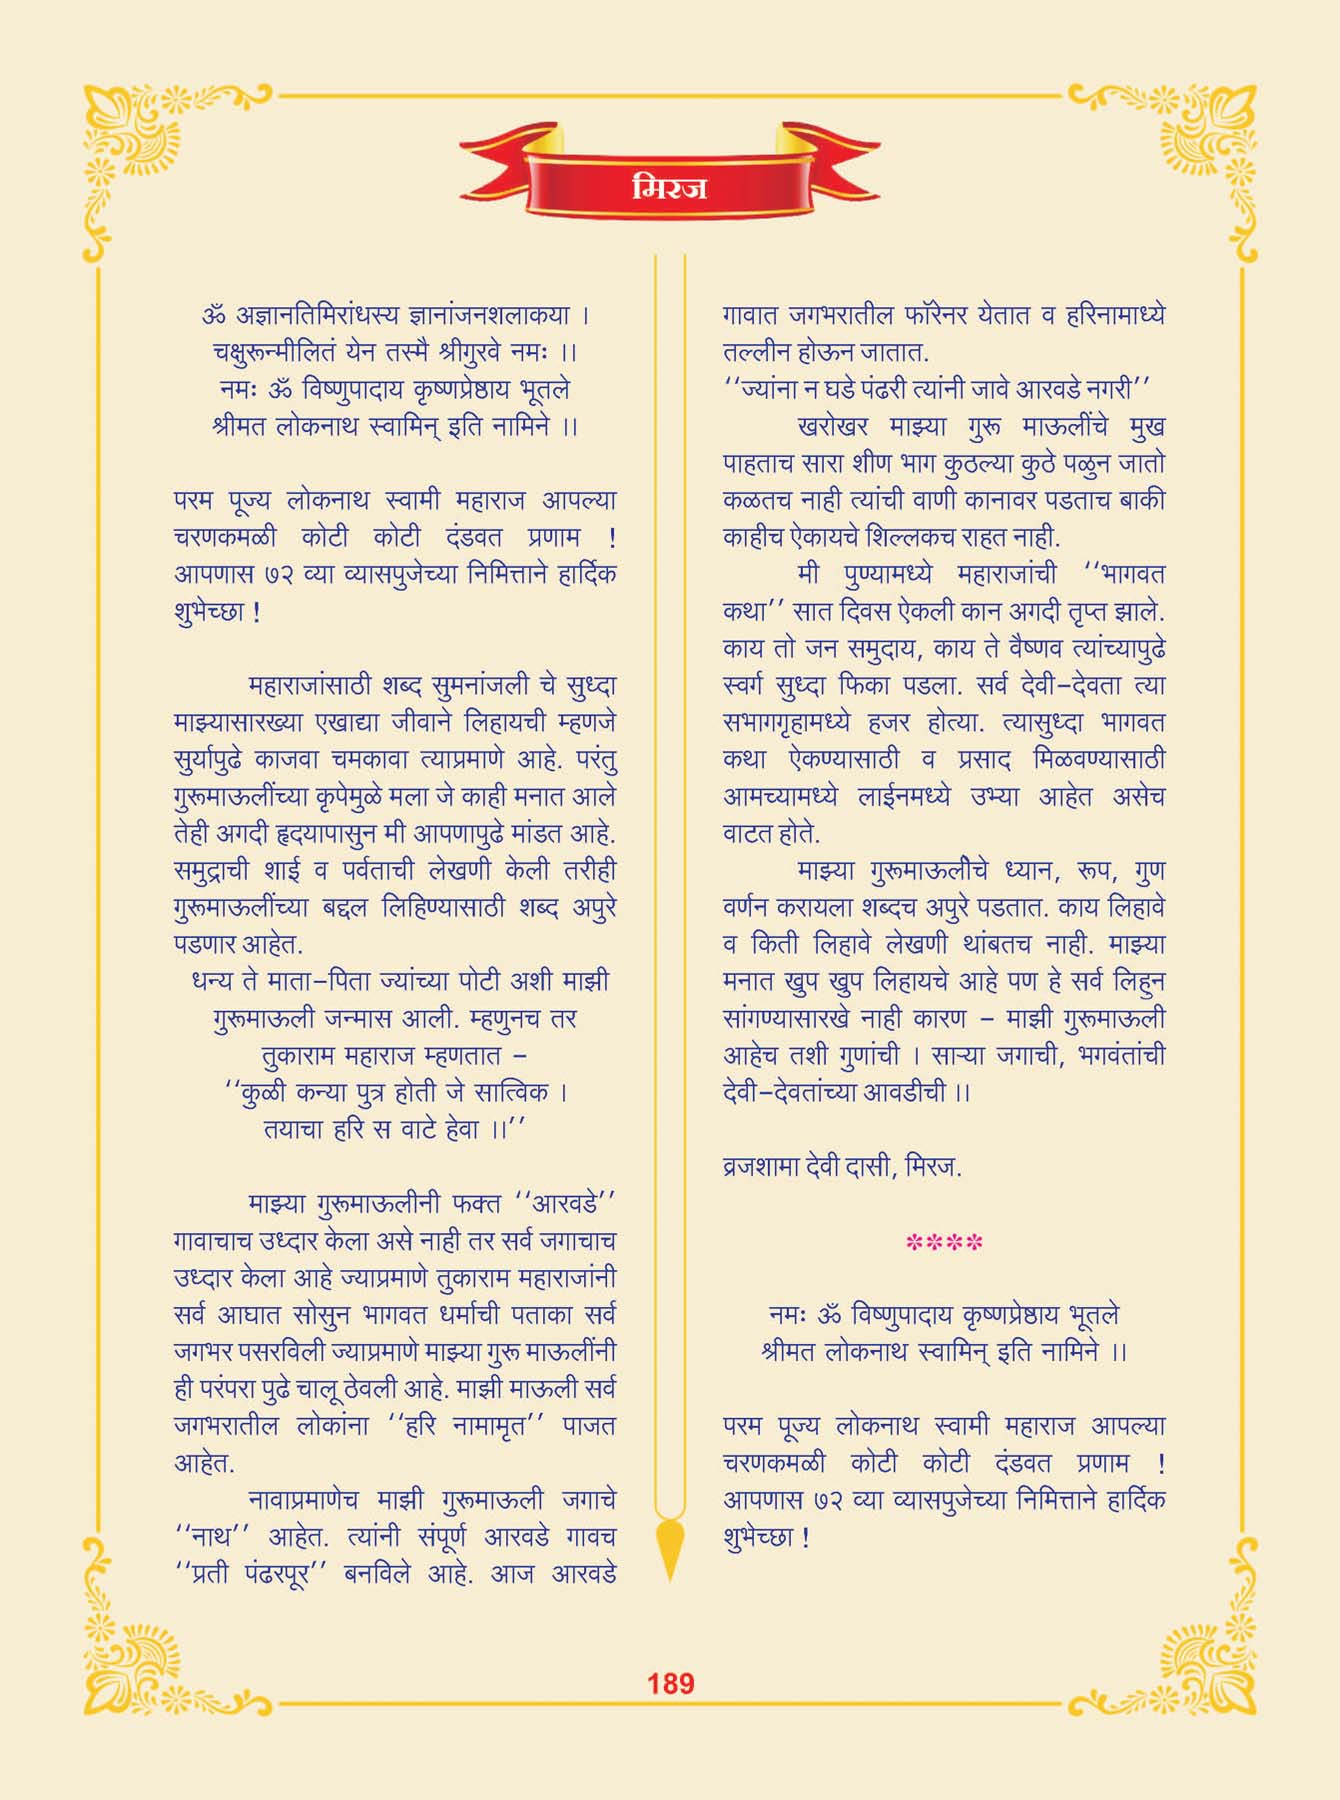 मिरज
ॐ अज्ञानतिमिरांधस्य ज्ञानांजनशलाकया ।
चक्षुरून्मीलितं येन तस्मै श्रीगुरवे नमः ।।
नमः ॐ विष्णुपादाय कृष्णप्रेष्ठाय भूतले
श्रीमत लोकनाथ स्वामिन् इति नामिने ।।
परम पूज्य लोकनाथ स्वामी महाराज आपल्या
चरणकमळी कोटी कोटी दंडवत प्रणाम !
आपणास ७२ व्या व्यासपुजेच्या निमित्ताने हार्दिक
शुभेच्छा !
महाराजांसाठी शब्द सुमनांजली चे सुध्दा
माझ्यासारख्या एखाद्या जीवाने लिहायची म्हणजे
सुर्यापुढे काजवा चमकावा त्याप्रमाणे आहे. परंतु
गुरूमाऊलींच्या कृपेमुळे मला जे काही मनात आले
तेही अगदी हृदयापासुन मी आपणापुढे मांडत आहे.
समुद्राची शाई व पर्वताची लेखणी केली तरीही
गुरूमाऊलींच्या बद्दल लिहिण्यासाठी शब्द अपुरे
पडणार आहेत.
धन्य ते माता-पिता ज्यांच्या पोटी अशी माझी
गुरूमाऊली जन्मास आली. म्हणुनच तर
तुकाराम महाराज म्हणतात -
‘‘कुळी कन्या पुत्र होती जे सात्विक ।
तयाचा हरि स वाटे हेवा ।।’’
माझ्या गुरूमाऊलीनी फक्त ‘‘आरवडे’’
गावाचाच उध्दार केला असे नाही तर सर्व जगाचाच
उध्दार केला आहे ज्याप्रमाणे तुकाराम महाराजांनी
सर्व आघात सोसुन भागवत धर्माची पताका सर्व
जगभर पसरविली ज्याप्रमाणे माझ्या गुरू माऊलींनी
ही परंपरा पुढे चालू ठेवली आहे. माझी माऊली सर्व
जगभरातील लोकांना ‘‘हरि नामामृत’’ पाजत
आहेत.
नावाप्रमाणेच माझी गुरूमाऊली जगाचे
‘‘नाथ’’ आहेत. त्यांनी संपूर्ण आरवडे गावच
‘‘प्रती पंढरपूर’’ बनविले आहे. आज आरवडे
गावात जगभरातील फॉरेनर येतात व हरिनामाध्ये
तल्लीन होऊन जातात.
‘‘ज्यांना न घडे पंढरी त्यांनी जावे आरवडे नगरी’’
खरोखर माझ्या गुरू माऊलींचे मुख
पाहताच सारा शीण भाग कुठल्या कुठे पळुन जातो
कळतच नाही त्यांची वाणी कानावर पडताच बाकी
काहीच ऐकायचे शिल्लकच राहत नाही.
मी पुण्यामध्ये महाराजांची ‘‘भागवत
कथा’’ सात दिवस ऐकली कान अगदी तृप्त झाले.
काय तो जन समुदाय, काय ते वैष्णव त्यांच्यापुढे
स्वर्ग सुध्दा फिका पडला. सर्व देवी-देवता त्या
सभागगृहामध्ये हजर होत्या. त्यासुध्दा भागवत
कथा ऐकण्यासाठी व प्रसाद मिळवण्यासाठी
आमच्यामध्ये लाईनमध्ये उभ्या आहेत असेच
वाटत होते.
माझ्या गुरूमाऊलींचे ध्यान, रूप, गुण
वर्णन करायला शब्दच अपुरे पडतात. काय लिहावे
व किती लिहावे लेखणी थांबतच नाही. माझ्या
मनात खुप खुप लिहायचे आहे पण हे सर्व लिहुन
सांगण्यासारखे नाही कारण - माझी गुरूमाऊली
आहेच तशी गुणांची । साऱ्या जगाची, भगवंतांची
देवी-देवतांच्या आवडीची ।।
व्रजशामा देवी दासी, मिरज.
****
नमः ॐ विष्णुपादाय कृष्णप्रेष्ठाय भूतले
श्रीमत लोकनाथ स्वामिन् इति नामिने ।।
परम पूज्य लोकनाथ स्वामी महाराज आपल्या
चरणकमळी कोटी कोटी दंडवत प्रणाम !
आपणास ७२ व्या व्यासपुजेच्या निमित्ताने हार्दिक
शुभेच्छा !
189